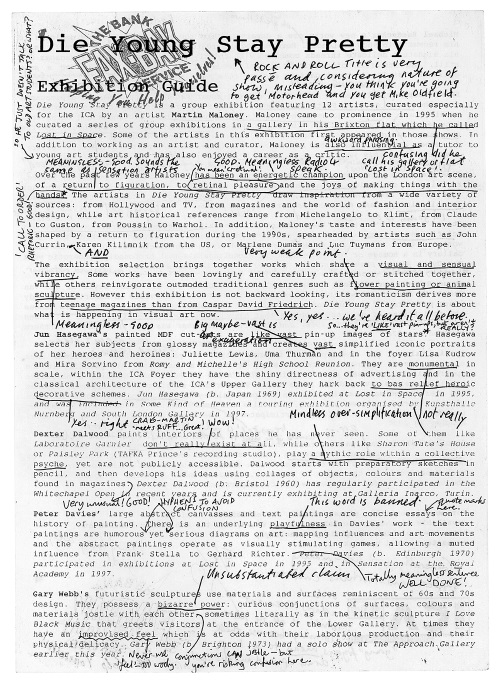 THE BANK
FAX-BAK
SERVICE
Die Young Stay Pretty
ROCK AND ROLL Title is very
passé and considering nature of
show, misleading - you think you're going
to get Motorhead and you get Mike Oldfield.
Exhibition Guide
Die Young Stay Pretty is a group exhibition featuring 12 artists, curated especially
for the ICA by an artist Martin Maloney. Maloney came to prominence in 1995 when he
curated a series of group exhibitions in a gallery in his Brixton flat which he called
Lost in Space. Some of the artists in this exhibition first appeared in those shows. In
addition to working as an artist and curator, Maloney is also influential as a tutor to
young art students and has also enjoyed a career as a critic.
MEANINGLESS - Good. Sounds the
same as Sensation artists
GOOD. Meaningless Radio 4
speak.
Confusing. Did he
call his gallery or flat
'Lost in Space'?
Over the past few years Maloney has been an energetic champion upon the London art scene,
of a return to figuration, to retinal pleasure and the joys of making things with the
hands. The artists in Die Young Stay Pretty draw inspiration from a wide variety of
sources: from Hollywood and TV, from magazines and the world of fashion and interior
design, while art historical references range from Michelangelo to Klimt, from Claude
to Guston, from Poussin to Warhol. In addition, Maloney's taste and interests have been
shaped by a return to figuration during the 1990s, spearheaded by artists such as John
Currin, Karen Kilimnik from the US, or Marlene Dumas and Luc Tuymans from Europe.
AND
Very weak point.
The exhibition selection brings together works which share a visual and sensual
vibrancy. Some works have been lovingly and carefully crafted or stitched together,
while others reinvigorate outmoded traditional genres such as flower painting or animal
sculpture. However this exhibition is not backward looking, its romanticism derives more
from teenage magazines than from Caspar David Friedrich. Die Young Stay Pretty is about
what is happening in visual art now.
Yes, yes... we've heard it all before.
Meaningless - GOOD
Big maybe - vast is
exaggeration
Jun Hasegawa's painted MDF cut-outs are like vast pin-up images of stars. Hasegawa
selects her subjects from glossy magazines and creates vast simplified iconic portraits
of her heroes and heroines: Juliette Lewis, Uma Thurman and in the foyer Lisa Kudrow
and Mira Sorvino from Romy and Michelle's High School Reunion. They are monumental in
scale, within the ICA Foyer they have the shiny directness of advertising and in the
classical architecture of the ICA's Upper Gallery they hark back to bas relief heroic
decorative schemes. Jun Hasegawa (b. Japan 1969) exhibited at Lost in Space in 1995,
and was included in Some Kind of Heaven a touring exhibition organised by Kunsthalle
Nurnberg and South London Gallery in 1997.
Yes.. right
Great! Wow!
Mindless over-simplification
not really
Dexter Dalwood paints interiors of places he has never seen. Some of them like
Laboratoire Garnier don't really exist at all, while others like Sharon Tate's House
or Paisley Park (TAFKA Prince's recording studio), play a mythic role within a collective
psyche, yet are not publicly accessible. Dalwood starts with preparatory sketches in
pencil, and then develops his ideas using collages of objects, colours and materials
found in magazines. Dexter Dalwood (b. Bristol 1960) has regularly participated in the
Whitechapel Open in recent years and is currently exhibiting at Galleria Inarco Turin.
Very unusual! GOOD!
HYPHEN! TO AVOID
CONFUSION
This word is banned
Quote marks
here.
Peter Davies' large abstract canvasses and text paintings are concise essays on the
history of painting. There is an underlying playfulness in Davies' work - the text
paintings are humorous yet serious diagrams on art: mapping influences and art movements
and the abstract paintings operate as visually stimulating games, allowing a muted
influence from Frank Stella to Gerhard Richter. Peter Davies (b. Edinburgh 1970)
participated in exhibitions at Lost in Space in 1995 and in Sensation at the Royal
Academy in 1997.
Unsubstantiated claim
Totally meaningless sentence
WELL DONE!
Gary Webb's futuristic sculptures use materials and surfaces reminiscent of 60s and 70s
design. They possess a bizarre power: curious conjunctions of surfaces, colours and
materials jostle with each other, sometimes literally as in the kinetic sculpture I Love
Black Music that greets visitors at the entrance of the Lower Gallery. At times they
have an improvised feel which is at odds with their laborious production and their
physical delicacy. Gary Webb (b. Brighton 1973) had a solo show at The Approach Gallery
earlier this year.
Never use conjunctions CAN jostle - but
you're risking confusion here.